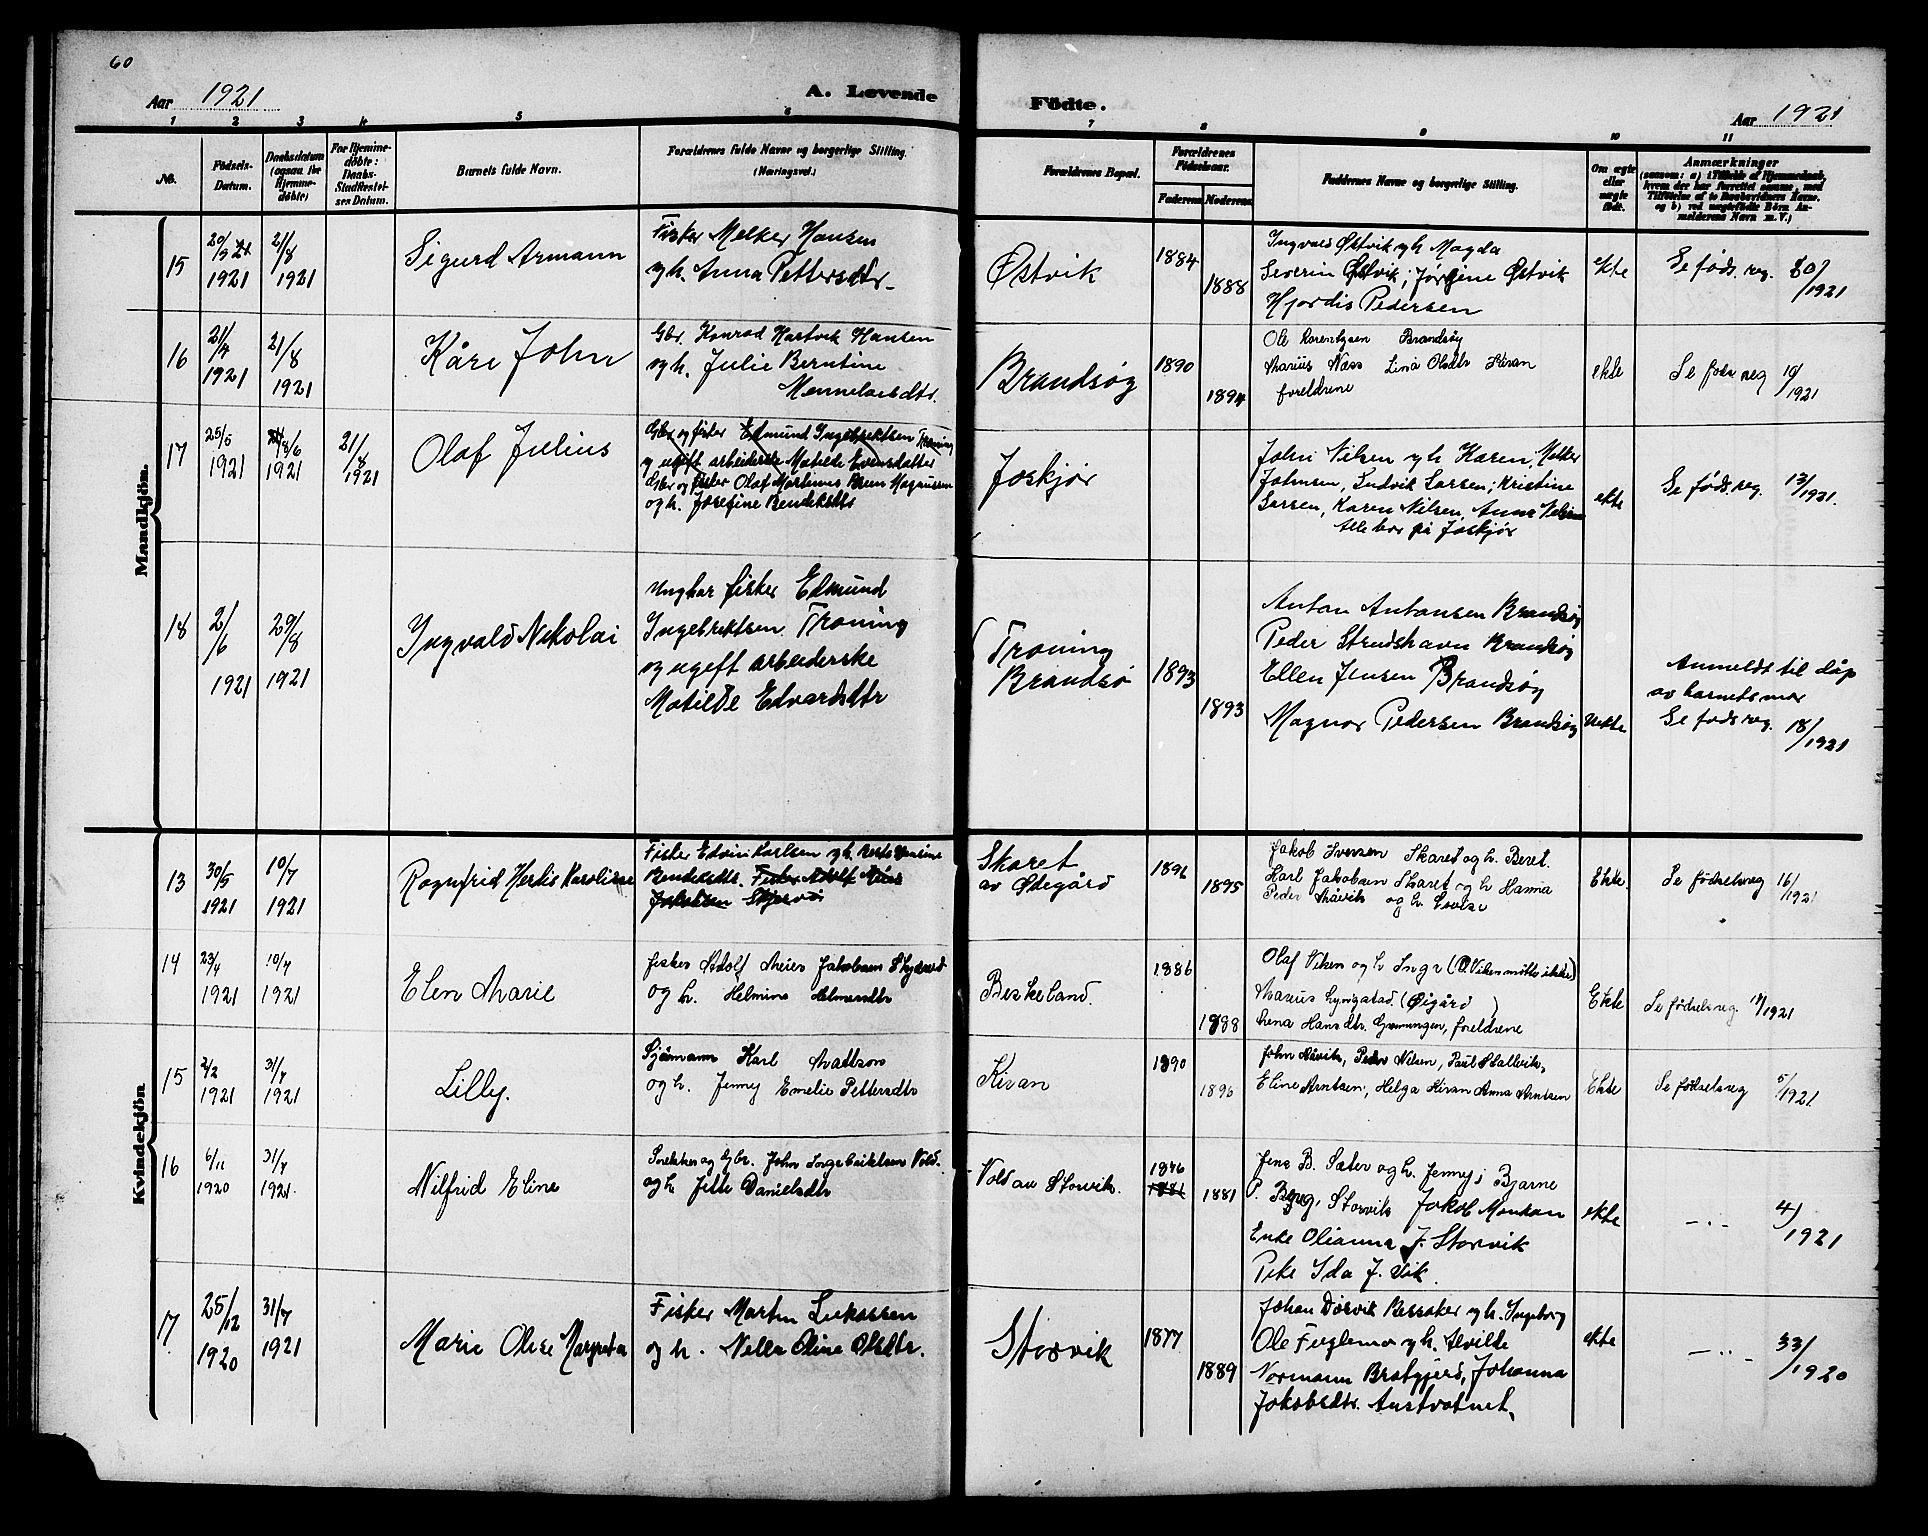 60
Aar 1921
A. Levende
Födte.
Aar 1921
1 2 3 4 5 6 7 8 9 10 11
No.
Födsels-
Datum.
Daabsdatum
(ogsaa for
Hjemme-
døbte)
For Hjemme-
døbte:
Daabs-
Stadfæstel-
ses Datum.
Barnets fulde Navn.
Forældrenes fulde Navne og borgerlige Stilling.
(Næringsvei.)
Forældrenes Bopæl.
Forældrenes
Födselsaar.
Faderens Moderens
Faddernes Navne og borgerlige Stilling.
Om ægte
eller
uægte
født.
Anmærkninger
(saasom: a) i Tilfælde af Hjemmedaab,
hvem der har forrettet samme, med
Tilføielse af to Daabsvidners Navne,
og b) ved uægtefødte Børn An-
melderens Navn m. V.)
Mandkjön.
15
20/3
1921
21/8
1921
Sigurd Armann
Fisker Melker Hansen
og h. Anna Pettersdtr.
Østvik
1884
1888
Ingvald Østvik og h. Magda
Severin Østvik; Jørgine Østvik
Hjordis Pedersen
ekte
Se føds. reg. 20/1921
16
21/4
1921
21/8
1921
Kåre John
Gbr. Konrad Hartvik Hansen
og h. Julie Berntine
Brandsøy
1890
1894
Ole Brandsøy
Marius Næss Lina Olsdtr Kiran
foreldrene
ekte
Se føds reg 10/1921
17
25/5
1921
8/6
1921
21/8
1921
Olaf Julius
Gbr og fisker Edmund Ingebrektsen Troning
og ugift arbeiderske Matilde Evensdatter
Gbr og fisker Olaf Martinus Magnussen
og h. Josefine
Joskjør
John Nilsen og h. Karen,
Johnsen, Ludvik Larsen; Kristine
Larsen, Karen Nilsen, Anna
Alle bor på Joskjør
ekte
Se føds. reg. 13/1921.
18
2/6
1921
29/8
1921
Ingvald Nikolai
Ungkar fisker Edmund
Ingebrektsen Troning
og ugift arbeiderske
Matilde Edvardsdtr
Troning
Brandsø
1893
1893
Anton Antonsen Brandsøy
Peder Strudshavn Brandsøy
Ellen Jensen Brandsøy
Magnor Pedersen Brandsøy
Uekte
Anmeldt til dåp
av barnets mor
Se føds reg. 18/1921
Kvindekjön
13
30/5
1921
10/7
1921
Ragnfrid Herdis Karoline
Fisker Edvin Karlsen og h.
Bendeksdtr. Fisker Adolf Meier
Jakobsen
Skaret
av Ødegård
1896
1895
Jakob Iversen Skaret og h. Beret.
Karl Jakobsen Skaret og h Hanna
Peder Måvik og h. Lovise
Ekte.
Se fødselsreg 16/1921
14
23/4
1921
10/7
1921
Elen Marie
fisker Adolf Meier Jakobsen
og h. Helmine Helmersdtr
Beskeland.
1886
1888
Olaf Viken og h Inga (O. Viken møtte ikke)
Marius Lyngstad (Øigård)
Lena Hansdtr. foreldrene
Ekte
Se fødselsreg. 1921
15
2/2
1921
31/7
1921
Lilly.
Sjømann Karl Madtson
og h. Jenny Emelie Pettersdtr
Kiran
1890
1896
John Måvik, Peder Nilsen, Paul
Eline Arntsen, Helga Kiran Anna Arntsen
Ekte
Se fødselsreg 5/1921.
16
6/11
1920
31/7
1921
Nilfrid Eline
Snekker og Gbr. John Ingebriktsen Vold.
og h Jitte Danielsdtr
Vold av Storvik.
1876
1881
Jens B. Sæter og h. Jenny; Bjarne
P. Berg, Storvik Jakob Monkan
Enke Olianna J. Storvik
Pike Ida J. Vik.
ekte
— . — 4/1921
17
25/12
1920
31/7
1921
Marie Olise Margreta
Fisker Martin Lukassen
og h. Nella Oline Olsdtr.
Storvik
1877
1889
Johan Dørvik Bessaker og h. Ingeborg
Ole Fuglemo og h. Alvilde
Normann Bratgjerd, Johanna
Jakobsdtr. Austvatnet.
ekte
— .. — 33/1920